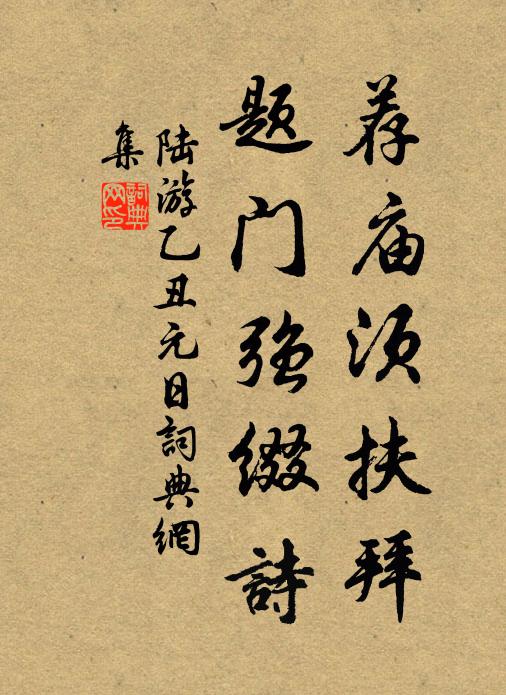 荐庙须扶拜
题门强缀詩
陆游乙丑元日詞典網
集
詞典
网印